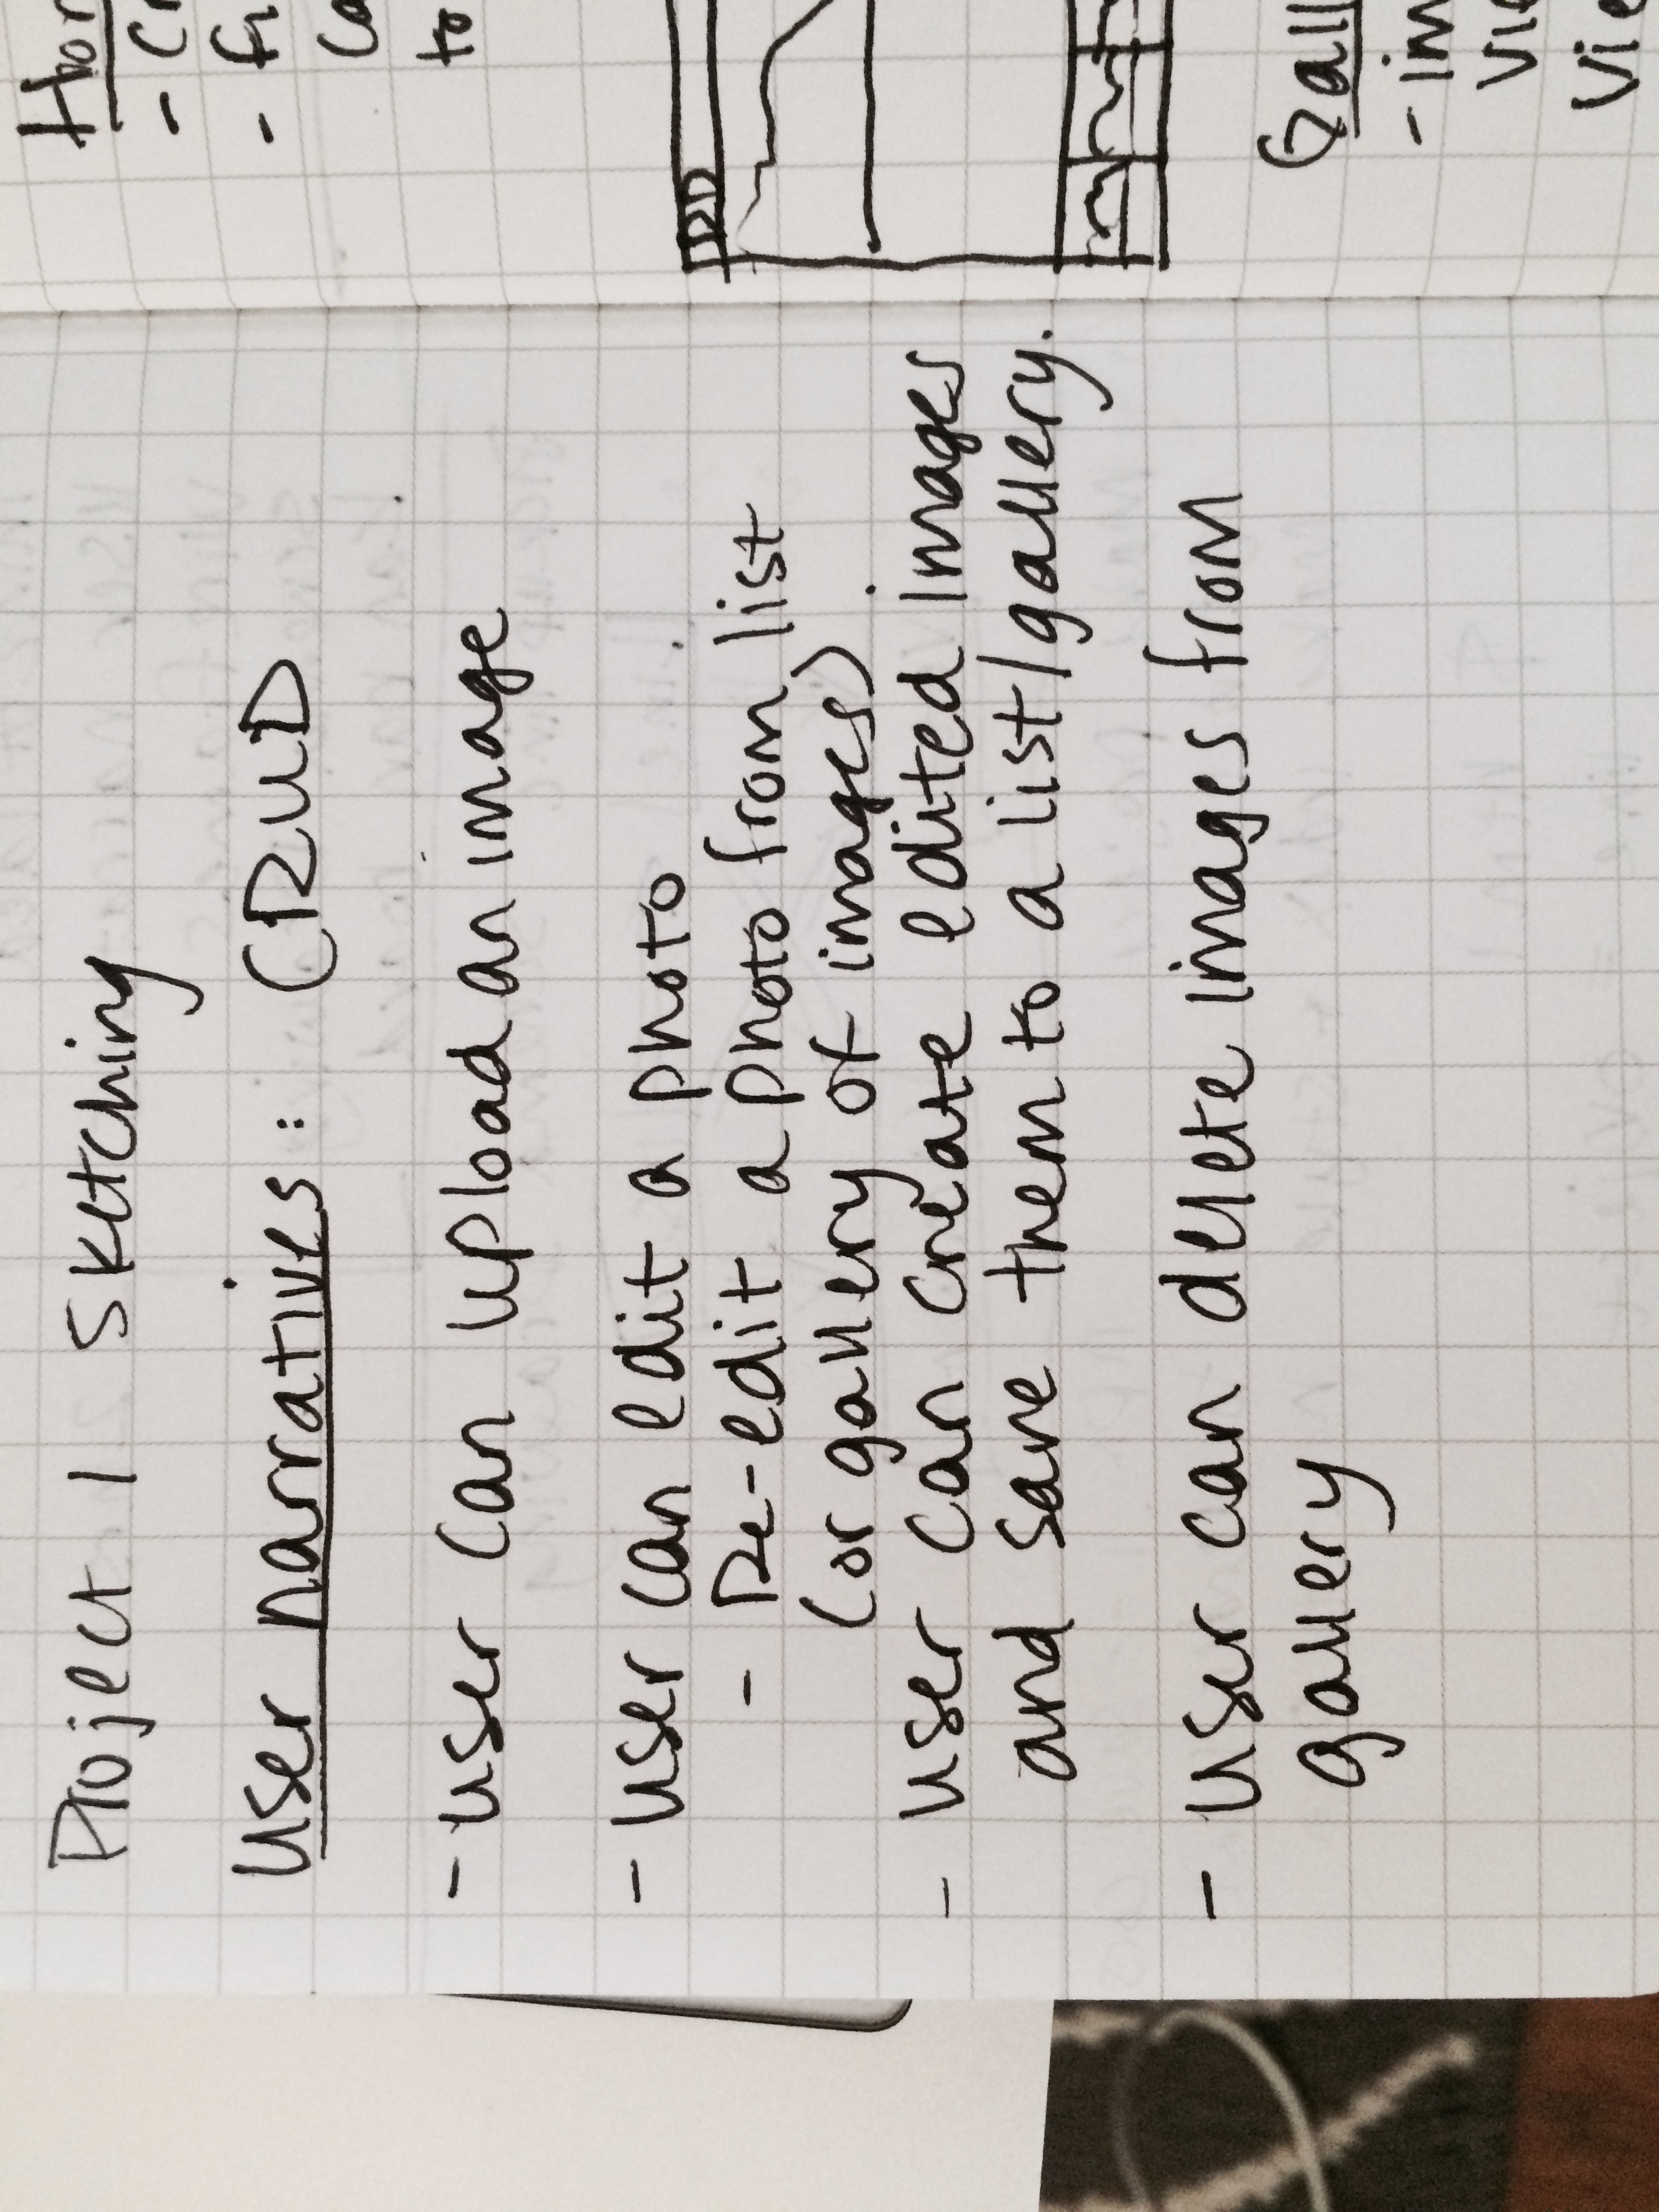 Project 1 Sketching
User narratives: CRUD
- User can upload an image
- User can edit a photo
- Re-edit a photo from list
(or gallery of images).
- User can create edited images
and save them to a list/gallery.
- User can delete images from
gallery
- 
to
DD